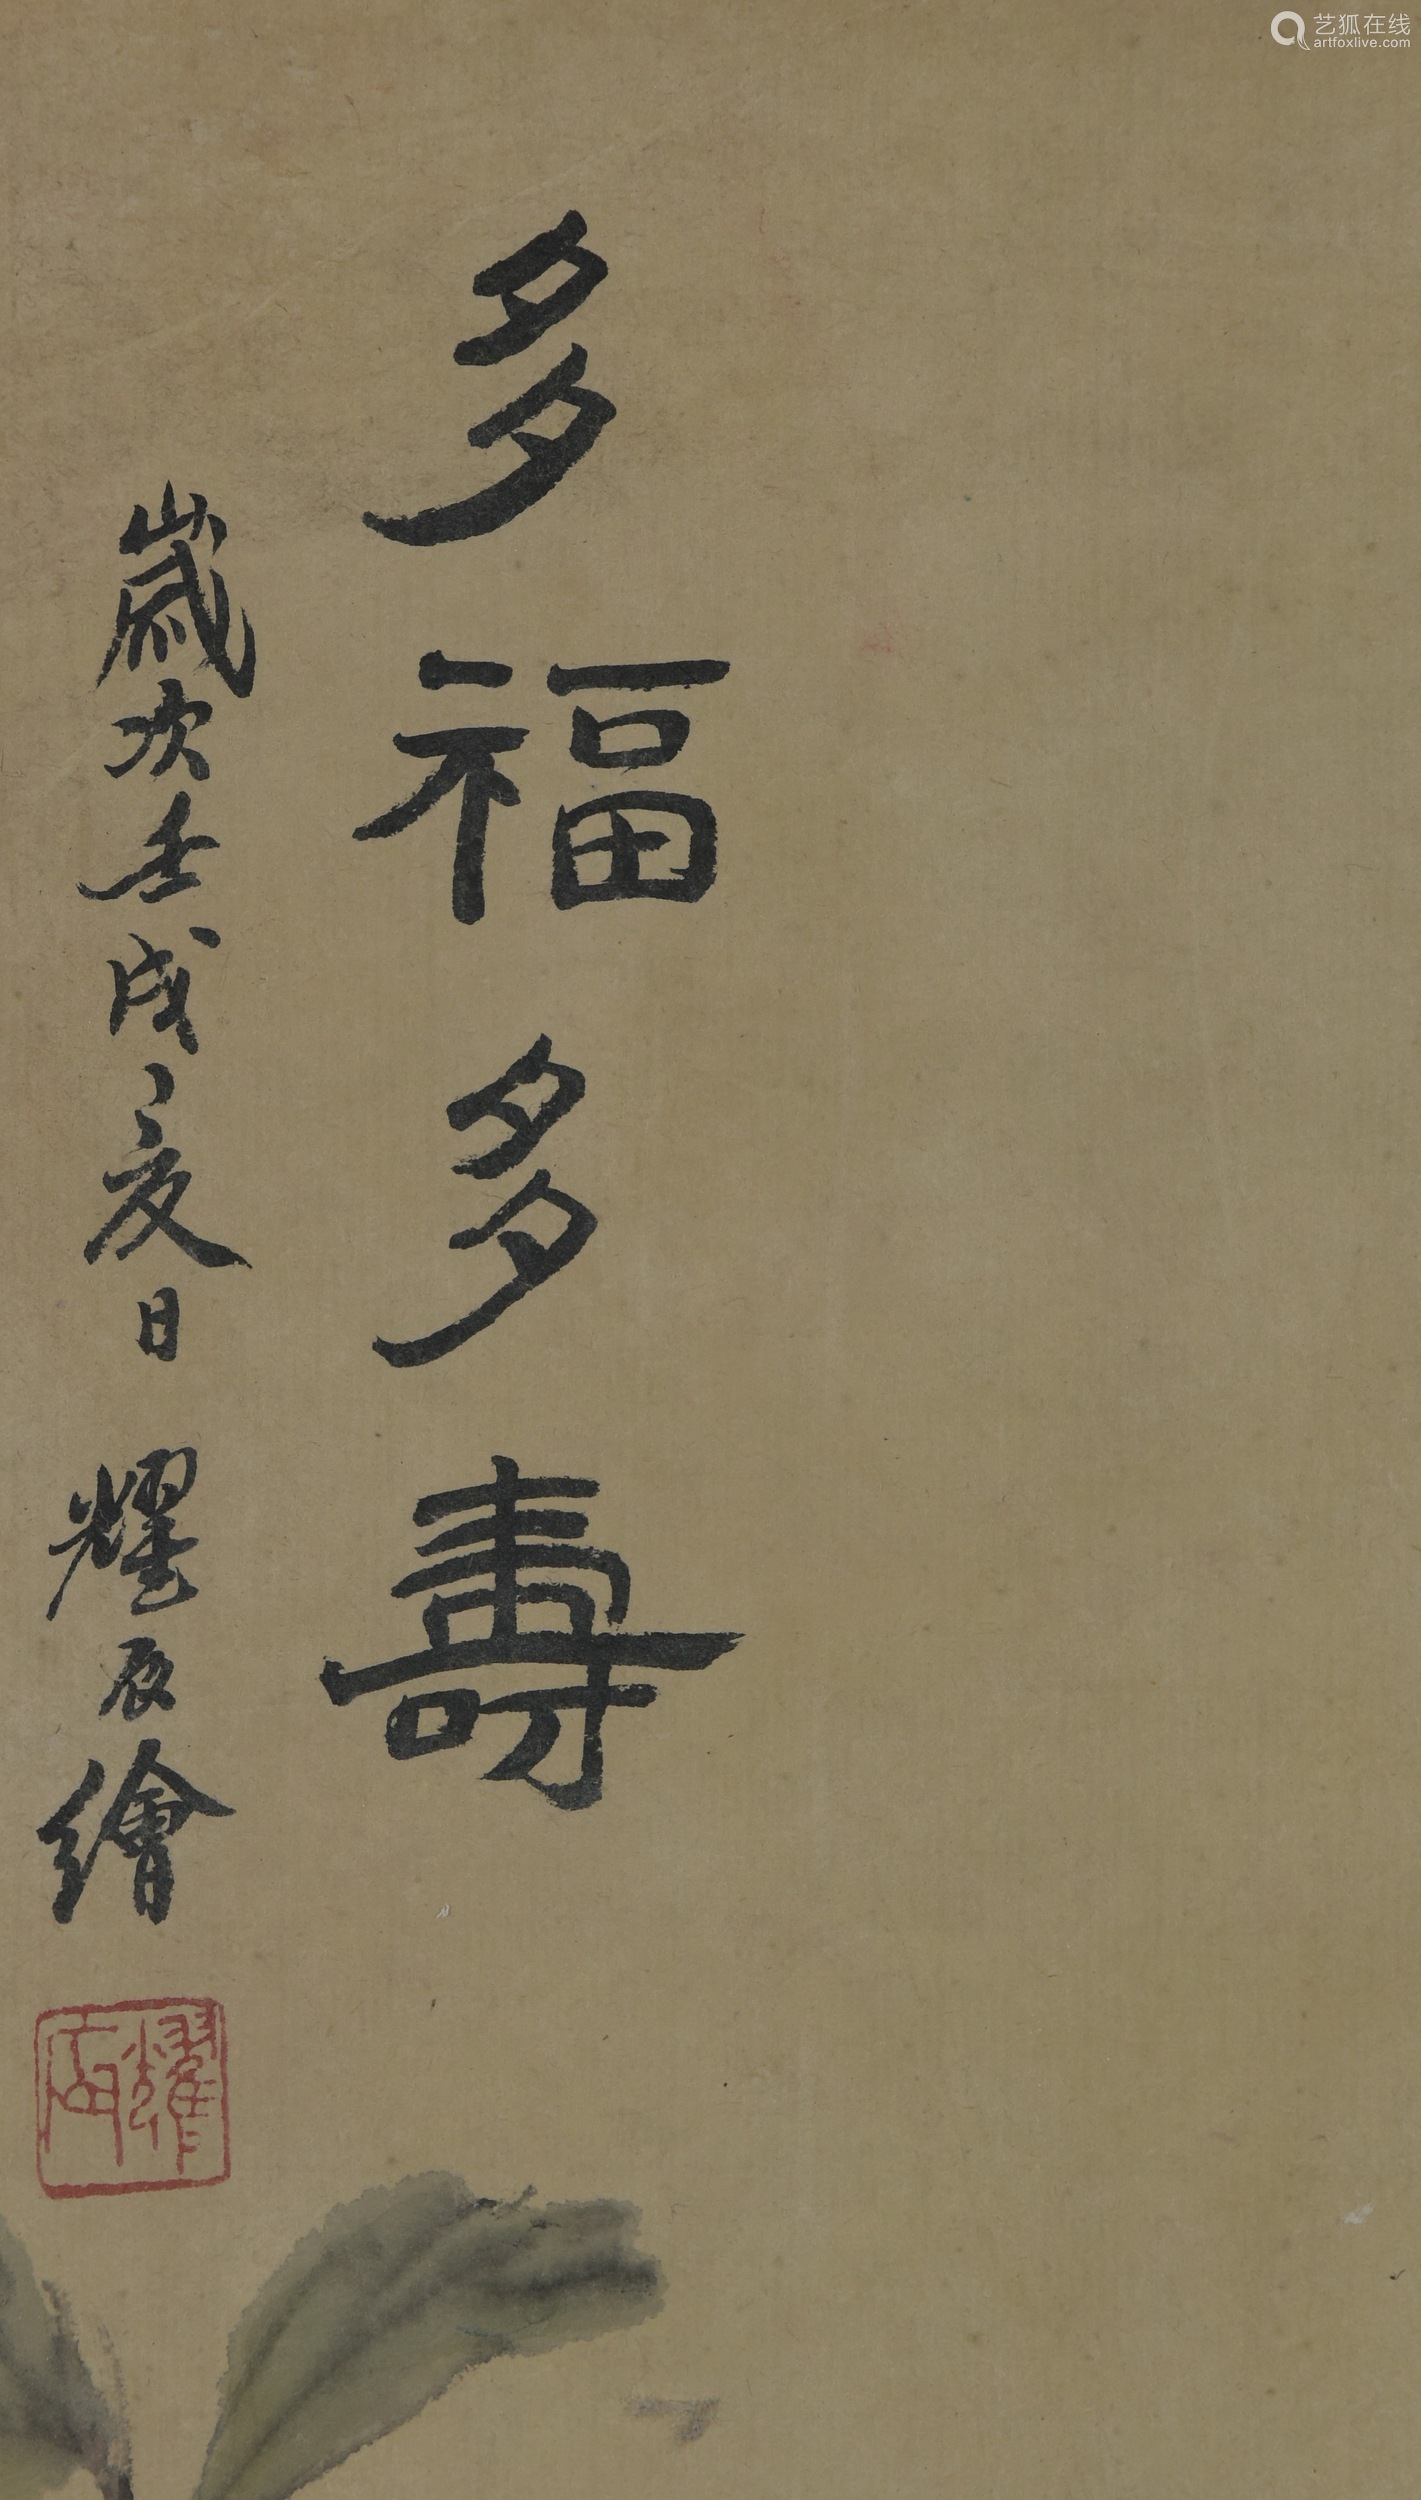 多福多壽
歲次壬戌之夏日 耀辰繪
耀辰
艺狐在线
artfoxlive.com